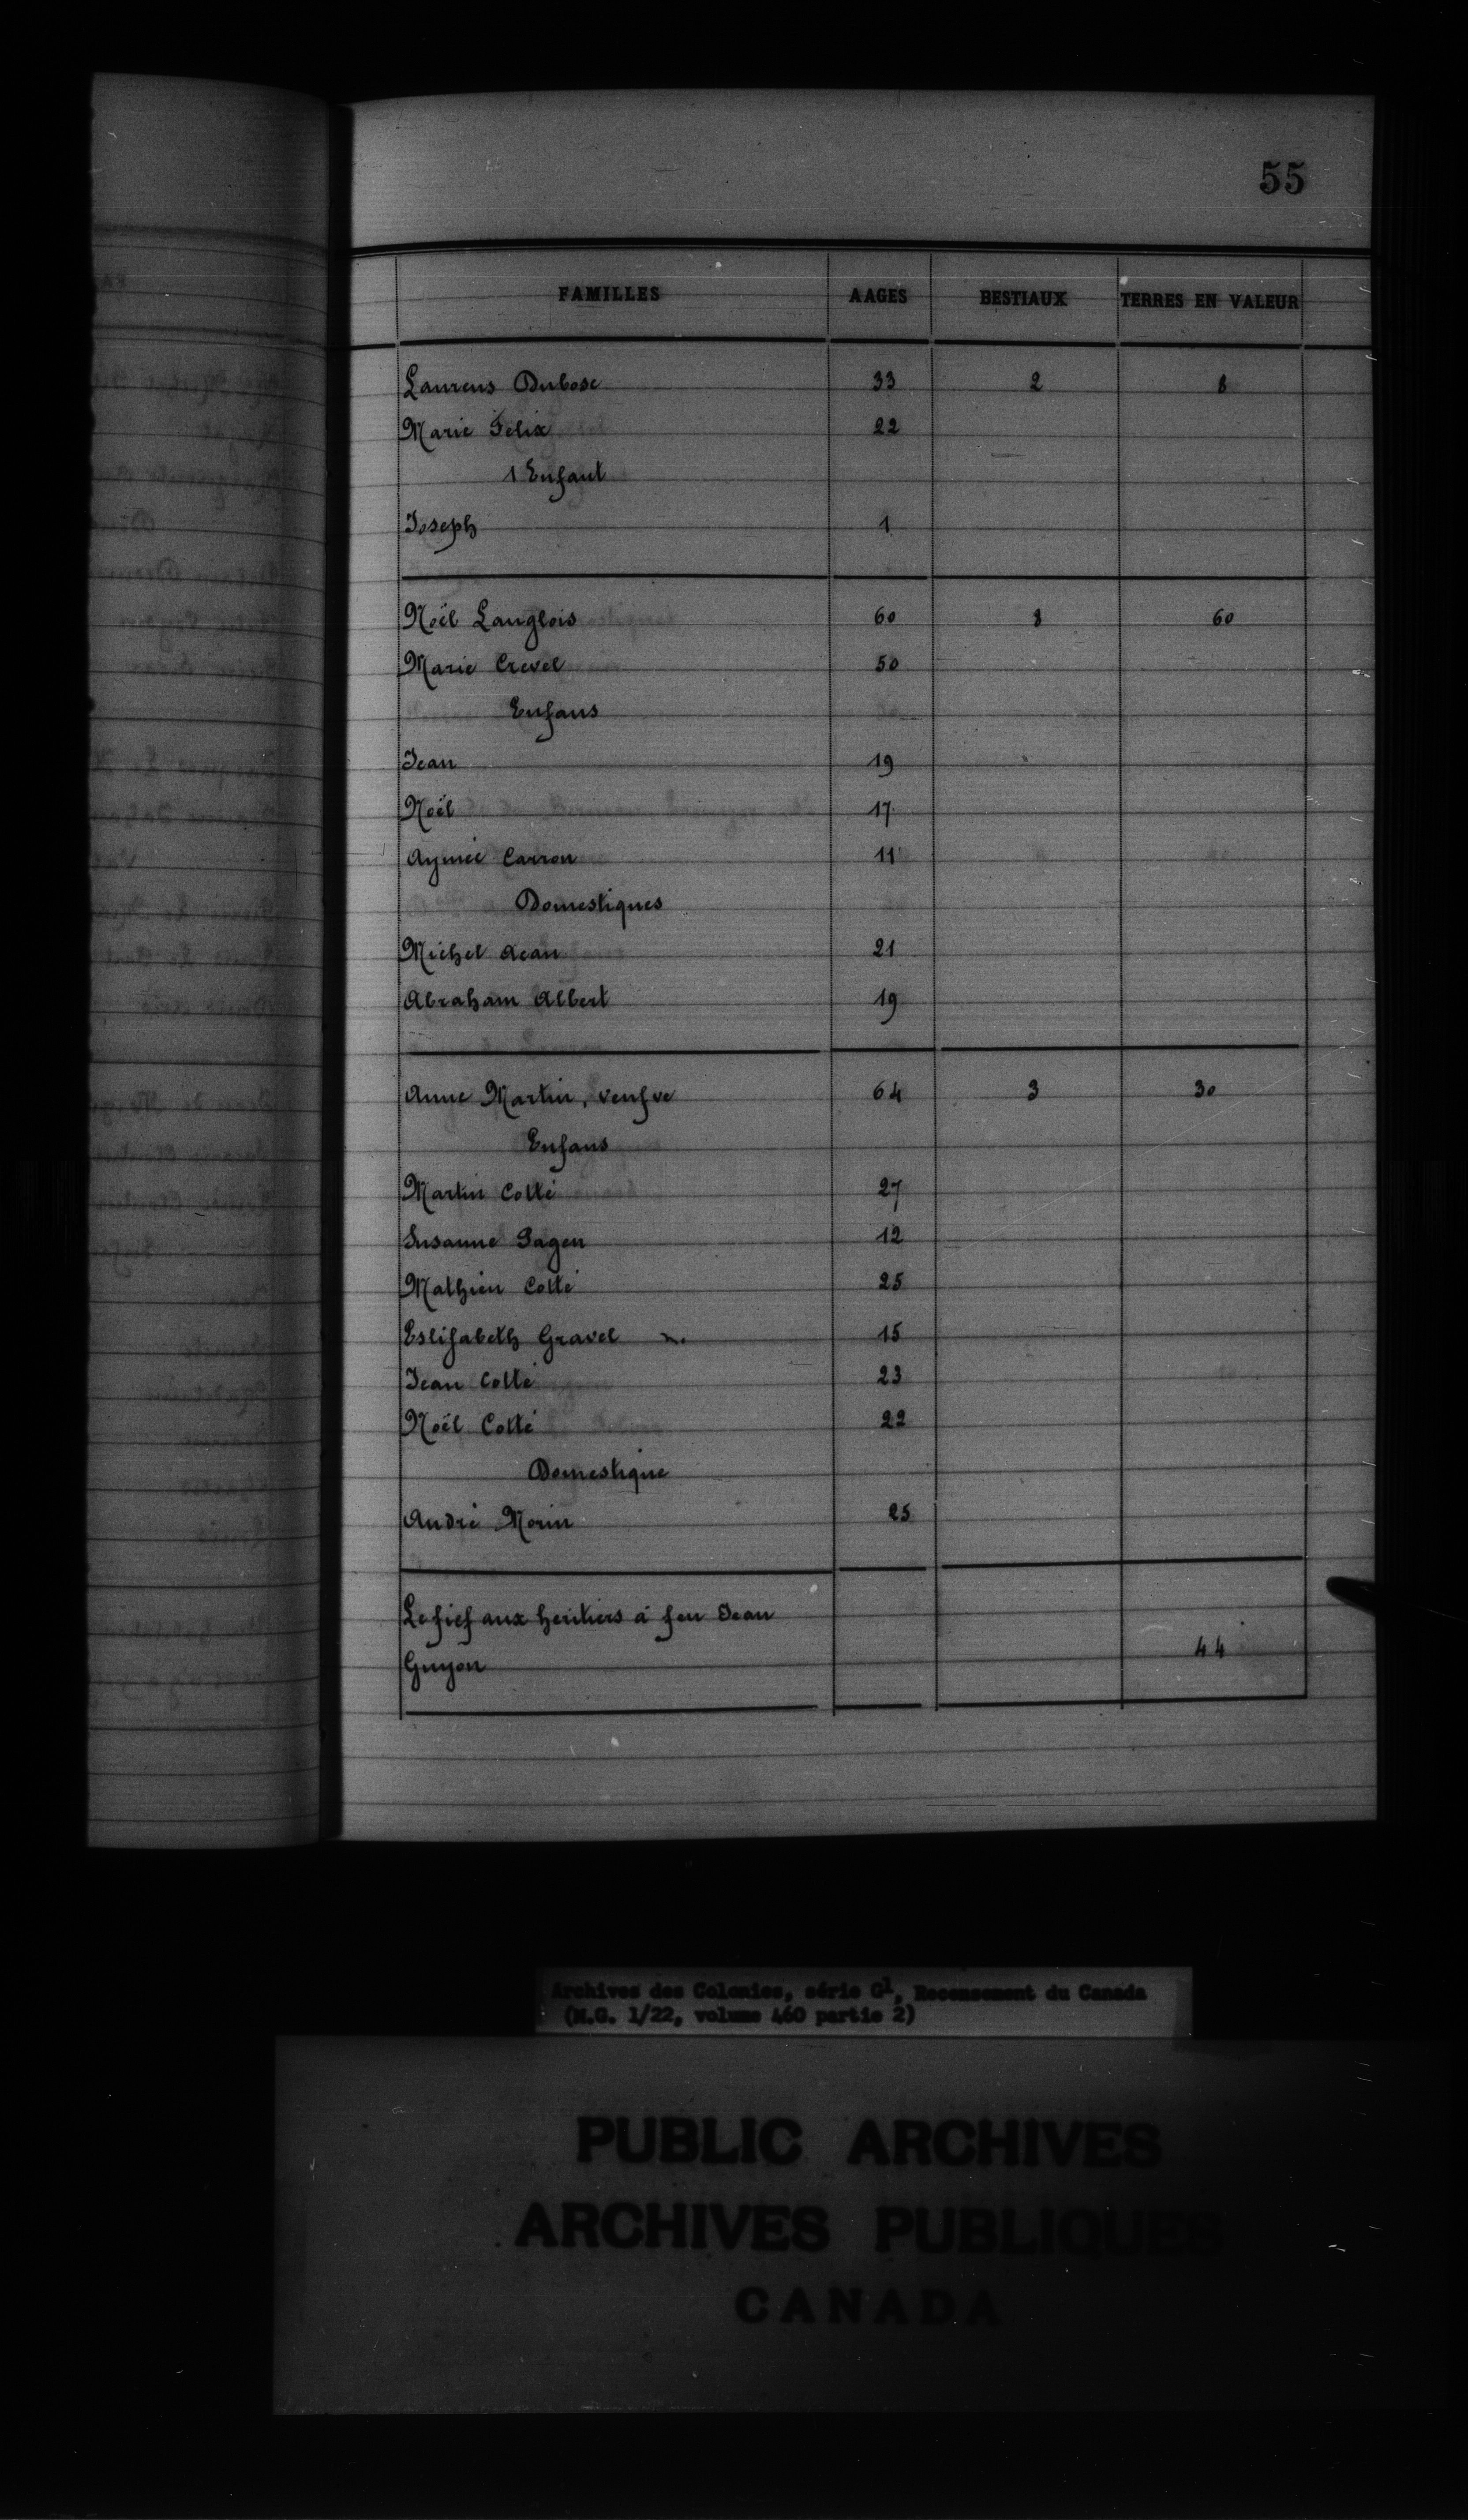 55
FAMILLES AAGES BESTIAUX TERRES EN VALEUR
Laurens Dubosc 33 2 8
Marie Felix 22
1 Enfant
Joseph 1
Noël Langlois 60 8 60
Marie Crevel 50
Enfans
Jean 19
Noël 17
Aymée Carron 11
Domestiques
Michel Aean 21
Abraham Albert 19
Anne Martin, veufve 64 3 30
Enfans
Martin Cotté 27
Susanne Pagen 12
Mathieu Cotté 25
Eslisabeth Gravel 15
Jean Cotté 23
Noël Cotté 22
Domestique
André Morin 25
Le fief aux heritiers à feu Jean
Guyon 44
Archives des Colonies, série G1, Recensement du Canada
(M.G. 1/22, volume 460 partie 2)
PUBLIC ARCHIVES
ARCHIVES PUBLIQUES
CANADA